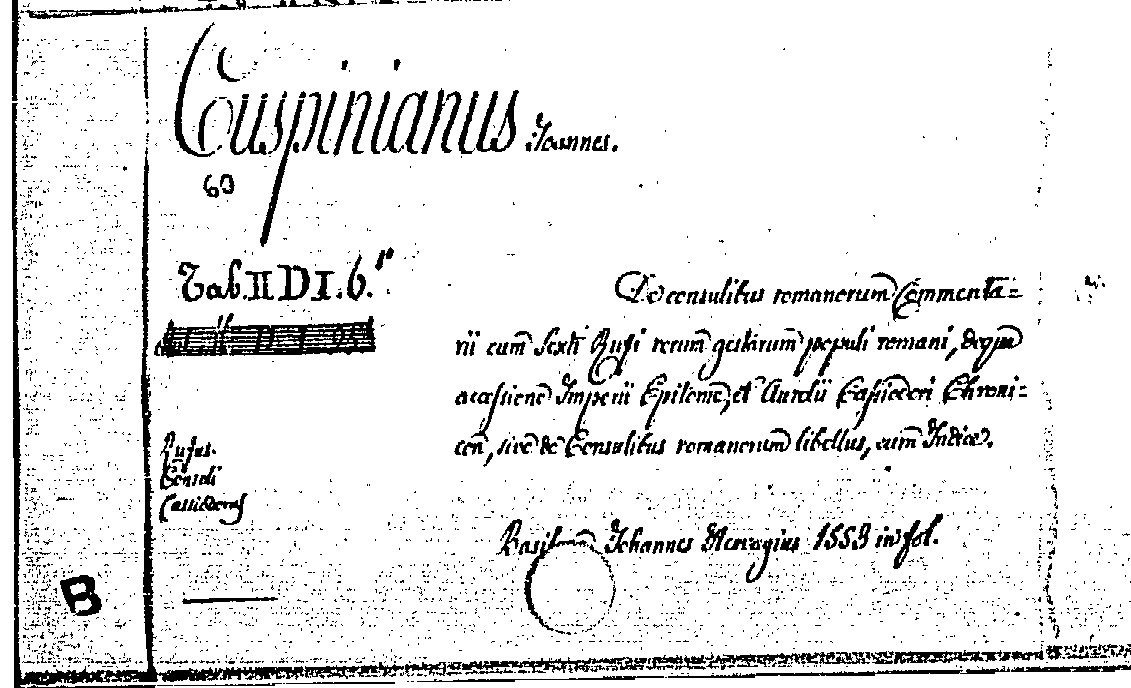 Cuspinianus Joannes.
60
Tab. II D I. 6.
De consulibus romanorum Commenta=
rii cum Sexti Rufi rerum gestarum populi romani, deq̃
accessione Imperii Epitome, et Aurelii Cassiodori Chroni=
con, sive de Consulibus romanorum libellus, cum Indice.
Rufus.
Consuli
Cassiodorus
Johannes Hervagius 1553 in fol.
B